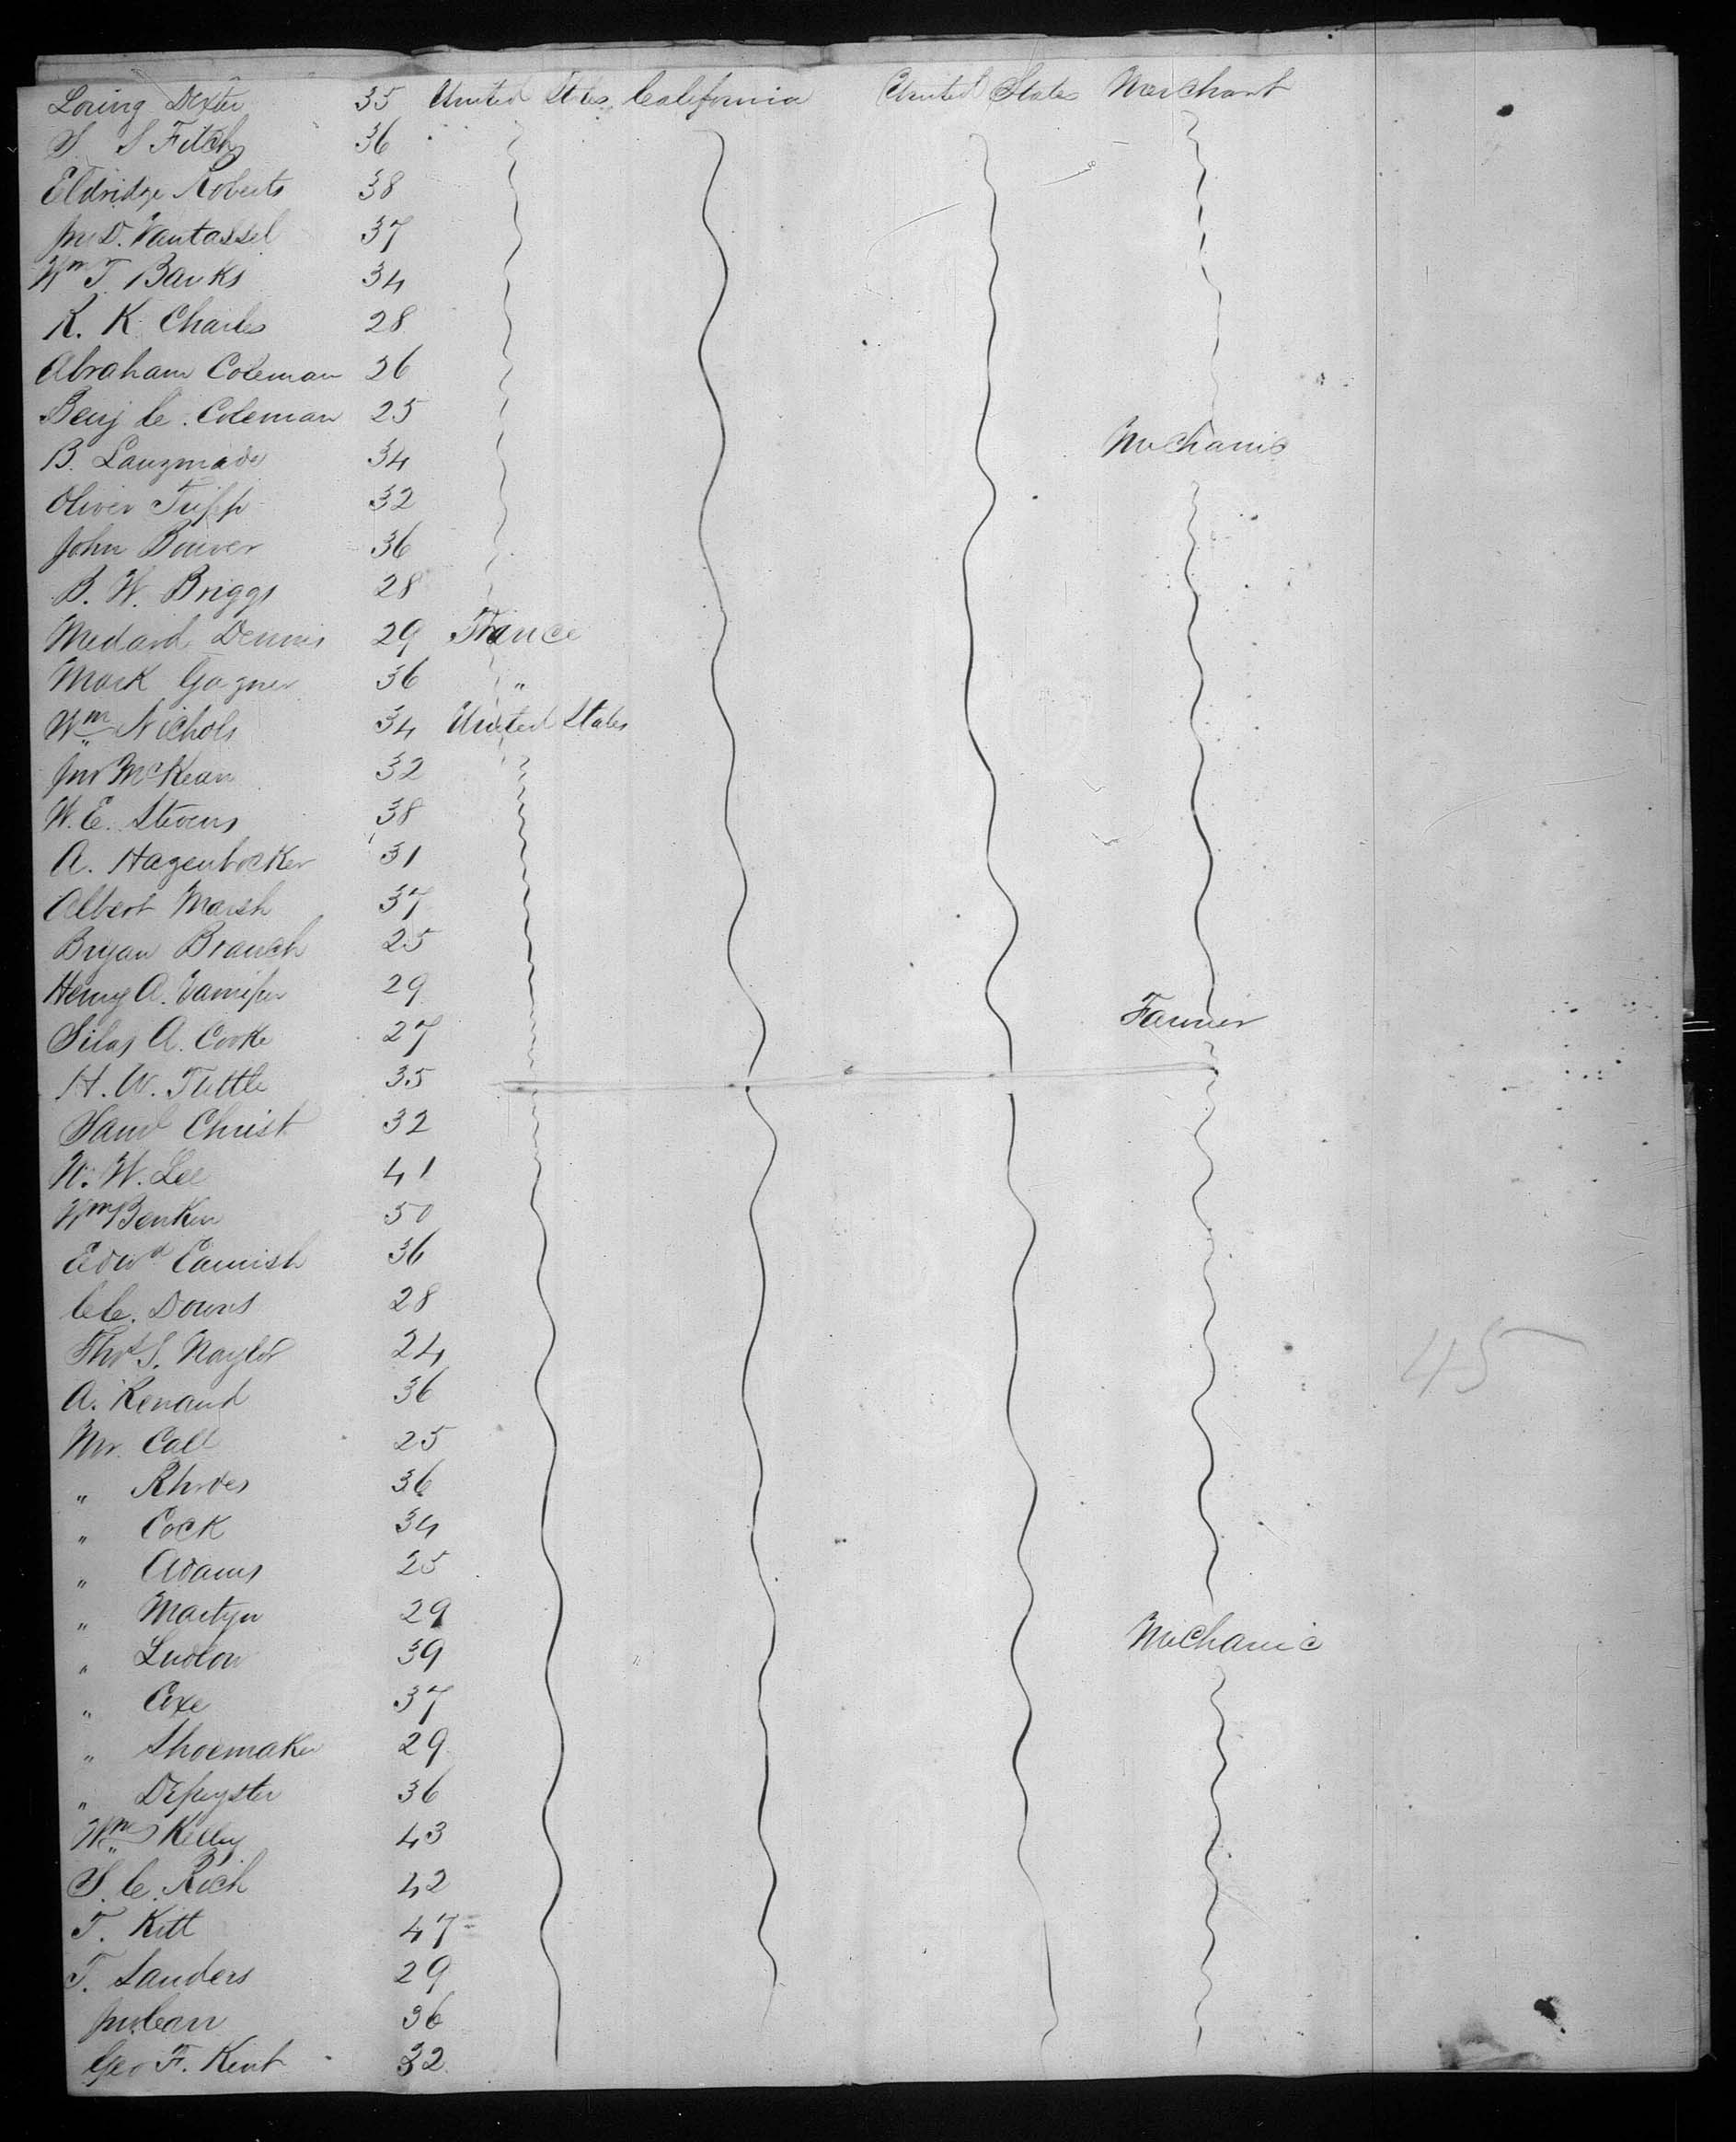 Loring Dexter 35 United States California United States Merchant
S S Fitch 36
Eldridge Roberts 38
Jno D. Vantassel 37
Wm T. Banks 34
R. K. Charles 28
Abraham Coleman 26
Benj C. Coleman 25
B. 34 Mechanic
Oliver Tripp 32
John Bowver 36
B. W. Briggs 28
Medard Dennis 29 France
Mark Gagner 36 "
Wm Nichols 34 United States
Jno McKean 32
W. E. Stevens 38
A. Hagenbocker 31
Albert Marsh 37
Bryan Branch 25
Henry A. 29 Farmer
Silas A. Cooke 27
H. W. Tuttle 35
Saml Christ 32
W. W. Lee 41
Wm Benken 50
Edwd 36
C C. Downs 28
Thos S. Naylor 24
A. Renaud 36
Mr. Call 25
" Rhodes 36
" Cock 34
" Adams 25
" Martyn 29 Mechanic
" Ludlow 39
" Coxe 37
" Shoemaker 29
" Depeyster 36
Wm Kelley 43
S. C. Rich 42
T. Kitt 47
T. Sanders 29
36
Geo F. Kent 32
45